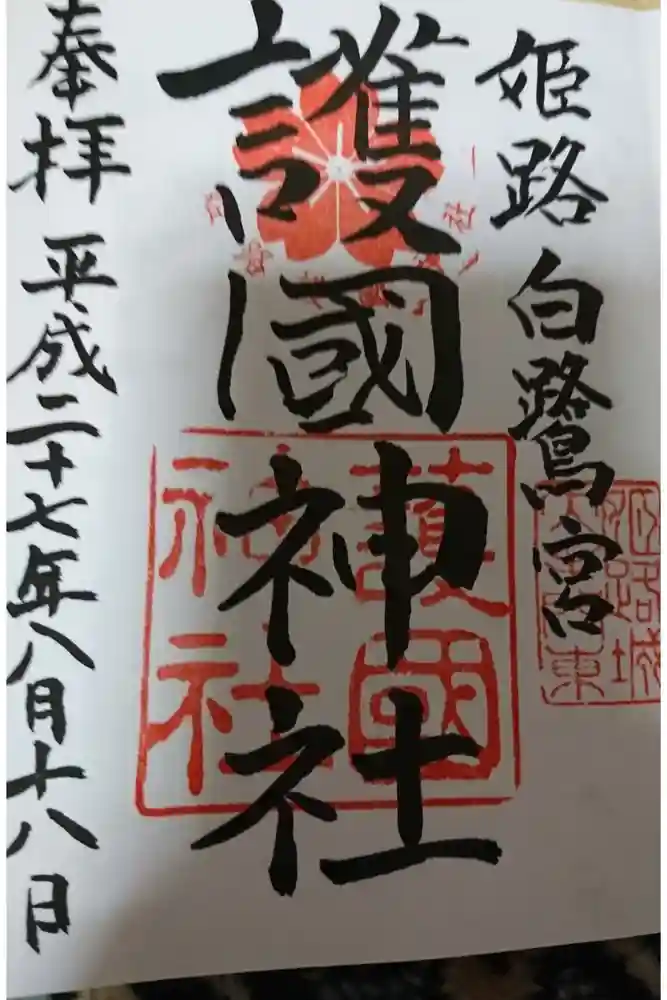 姫路 白鷺宮
護國神社
奉拝 平成二十七年八月十八日
護國
神社
姫路城